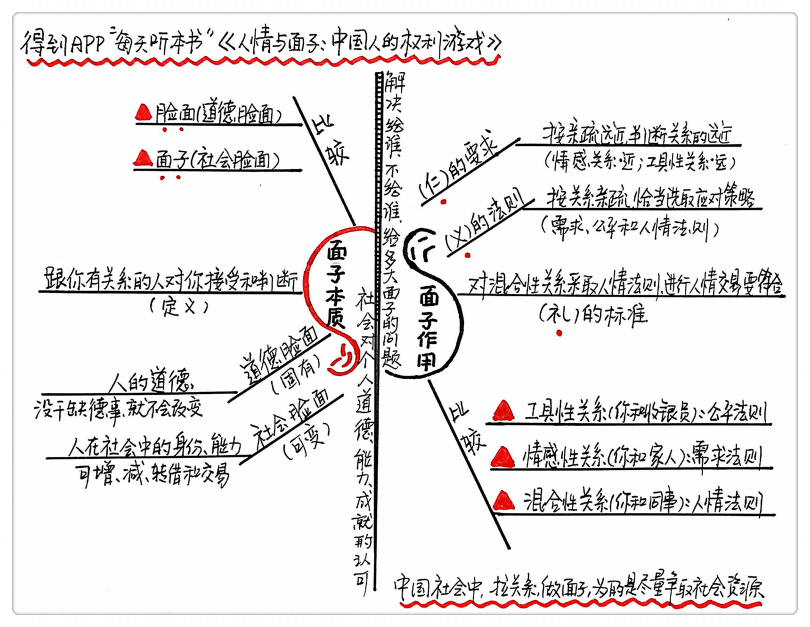 得到APP“每天听本书”《人情与面子:中国人的权利游戏》
比较
脸面(道德脸面)
面子(社会脸面)
面子本质
跟你有关系的人对你接受和判断
(定义)
道德脸面
(固有)
人的道德,
没干缺德事,就不会改变
社会脸面
(可变)
人在社会中的身份、能力
可增、减、转借和交易
社会对个人道德、能力、成就的认可
解决给谁、不给谁、给多大面子的问题
面子作用
(仁)的要求
按亲疏远近,判断关系的远近
(情感关系·亚;工具性关系·远)
(义)的法则
按关系亲疏,恰当选取应对策略
(需求、公平和人情法则)
对混合性关系采取人情法则,进行人情交易要符合
(礼)的标准
比较
工具性关系(你和收银员):公平法则
情感性关系(你和家人):需求法则
混合性关系(你和同事):人情法则
中国社会中,拉关系,做面子,为的是尽量争取社会资源